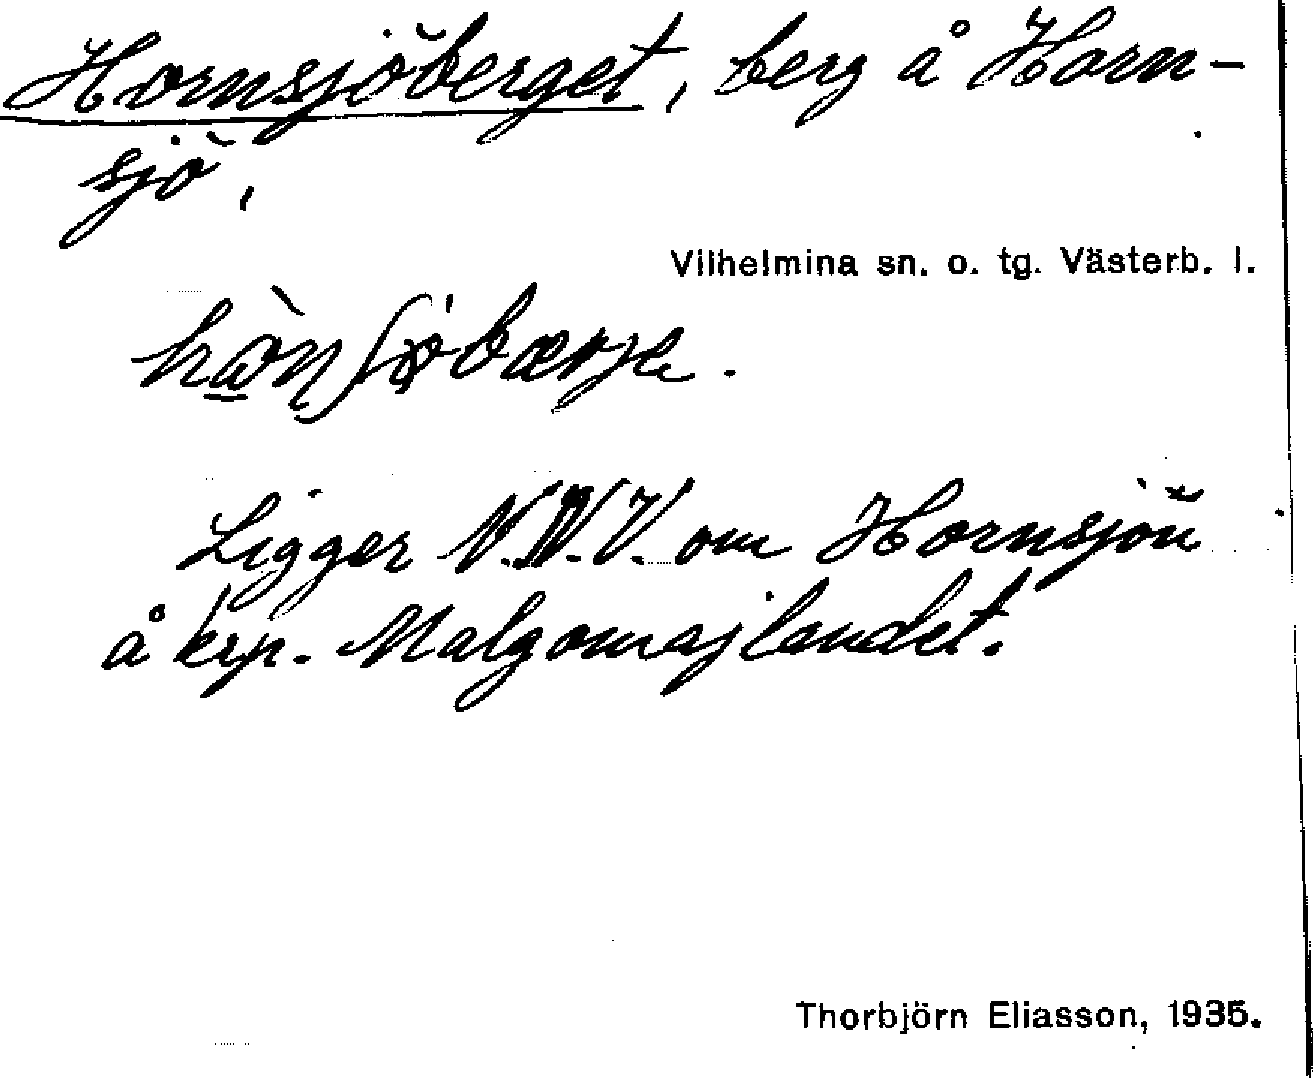 Hornsjöberget, berg å Horn-
sjö,
Vilhelmina sn. o. tg. Västerb. l.
Ligger N.N.V. om Hornsjön
å krp. Malgomajlandet.
Thorbjörn Eliasson, 1935.